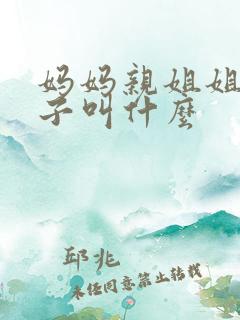 妈妈親姐姐
子叫什麼
邱兆
未经同意禁止转载